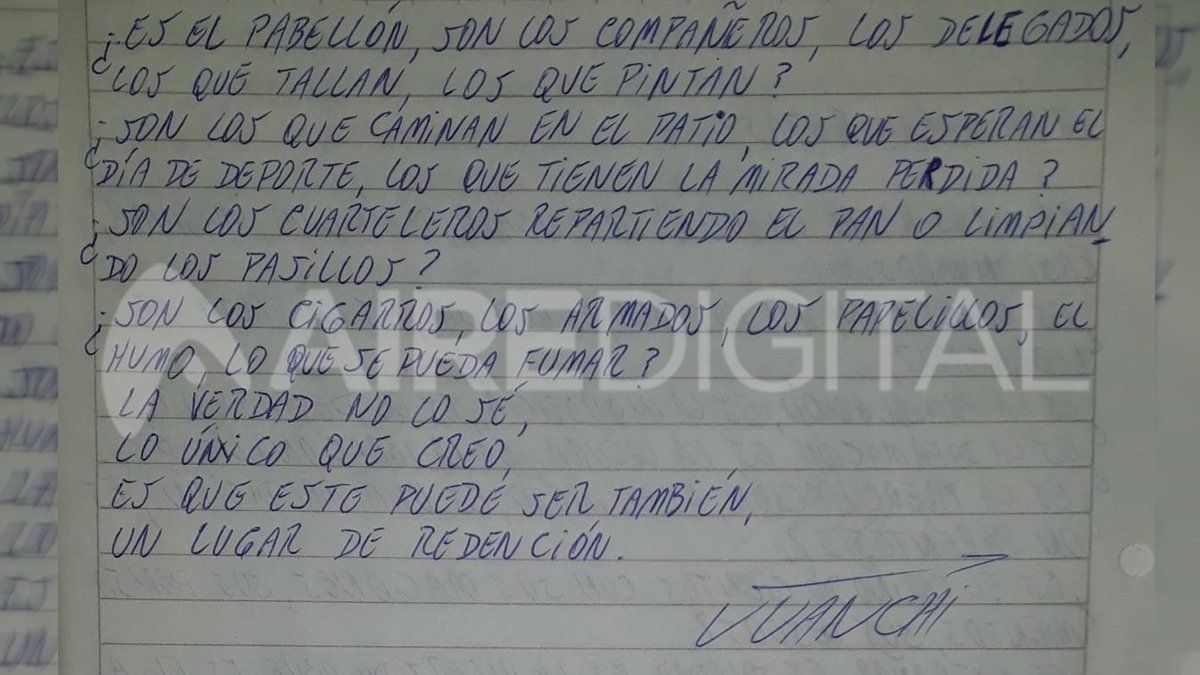 ¿ES EL PABELLÓN, SON LOS COMPAÑEROS, LOS DELEGADOS,
LOS QUE TALLAN, LOS QUE PINTAN?
¿SON LOS QUE CAMINAN EN EL PATIO, LOS QUE ESPERAN EL
DÍA DE DEPORTE, LOS QUE TIENEN LA MIRADA PERDIDA?
¿SON LOS CUARTELEROS REPARTIENDO EL PAN O LIMPIAN
DO LOS PASILLOS?
¿SON LOS CIGARROS, LOS ARMADOS, LOS PAPELILLOS, EL
HUMO, LO QUE SE PUEDA FUMAR?
AIREDIGITAL
LA VERDAD NO LO SÉ,
LO ÚNICO QUE CREO,
ES QUE ESTE PUEDE SER TAMBIÉN,
UN LUGAR DE REDENCIÓN.
JUANCHI